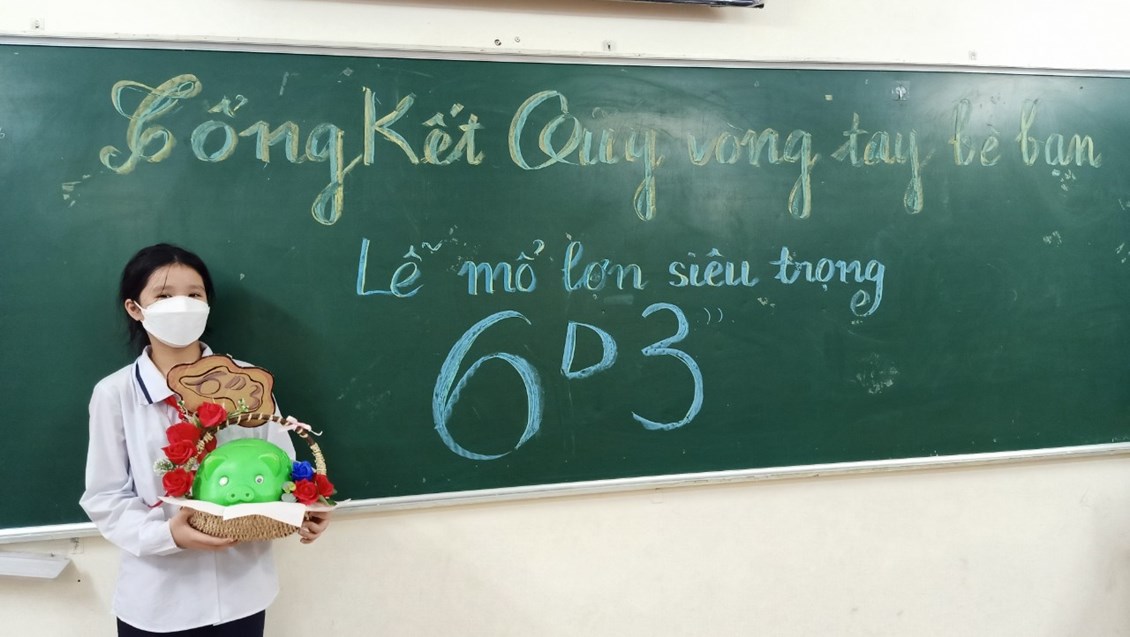 Tổng Kết Quỹ vòng tay bè bạn
Lễ mổ lợn siêu trọng
6D3 ))